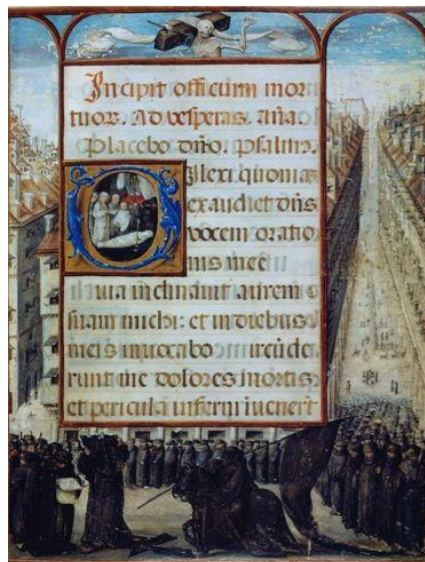 Incipit officium mor
tuor. Ad vesperas. ana
Placebo dno. psalm.
Dilexi quoniam
exaudiet dns
vocem oratio
nis mee
Quia inclinavit aurem
suam michi: et in diebus
meis invocabo
runt me dolores mortis
et pericula inferni invener̄t